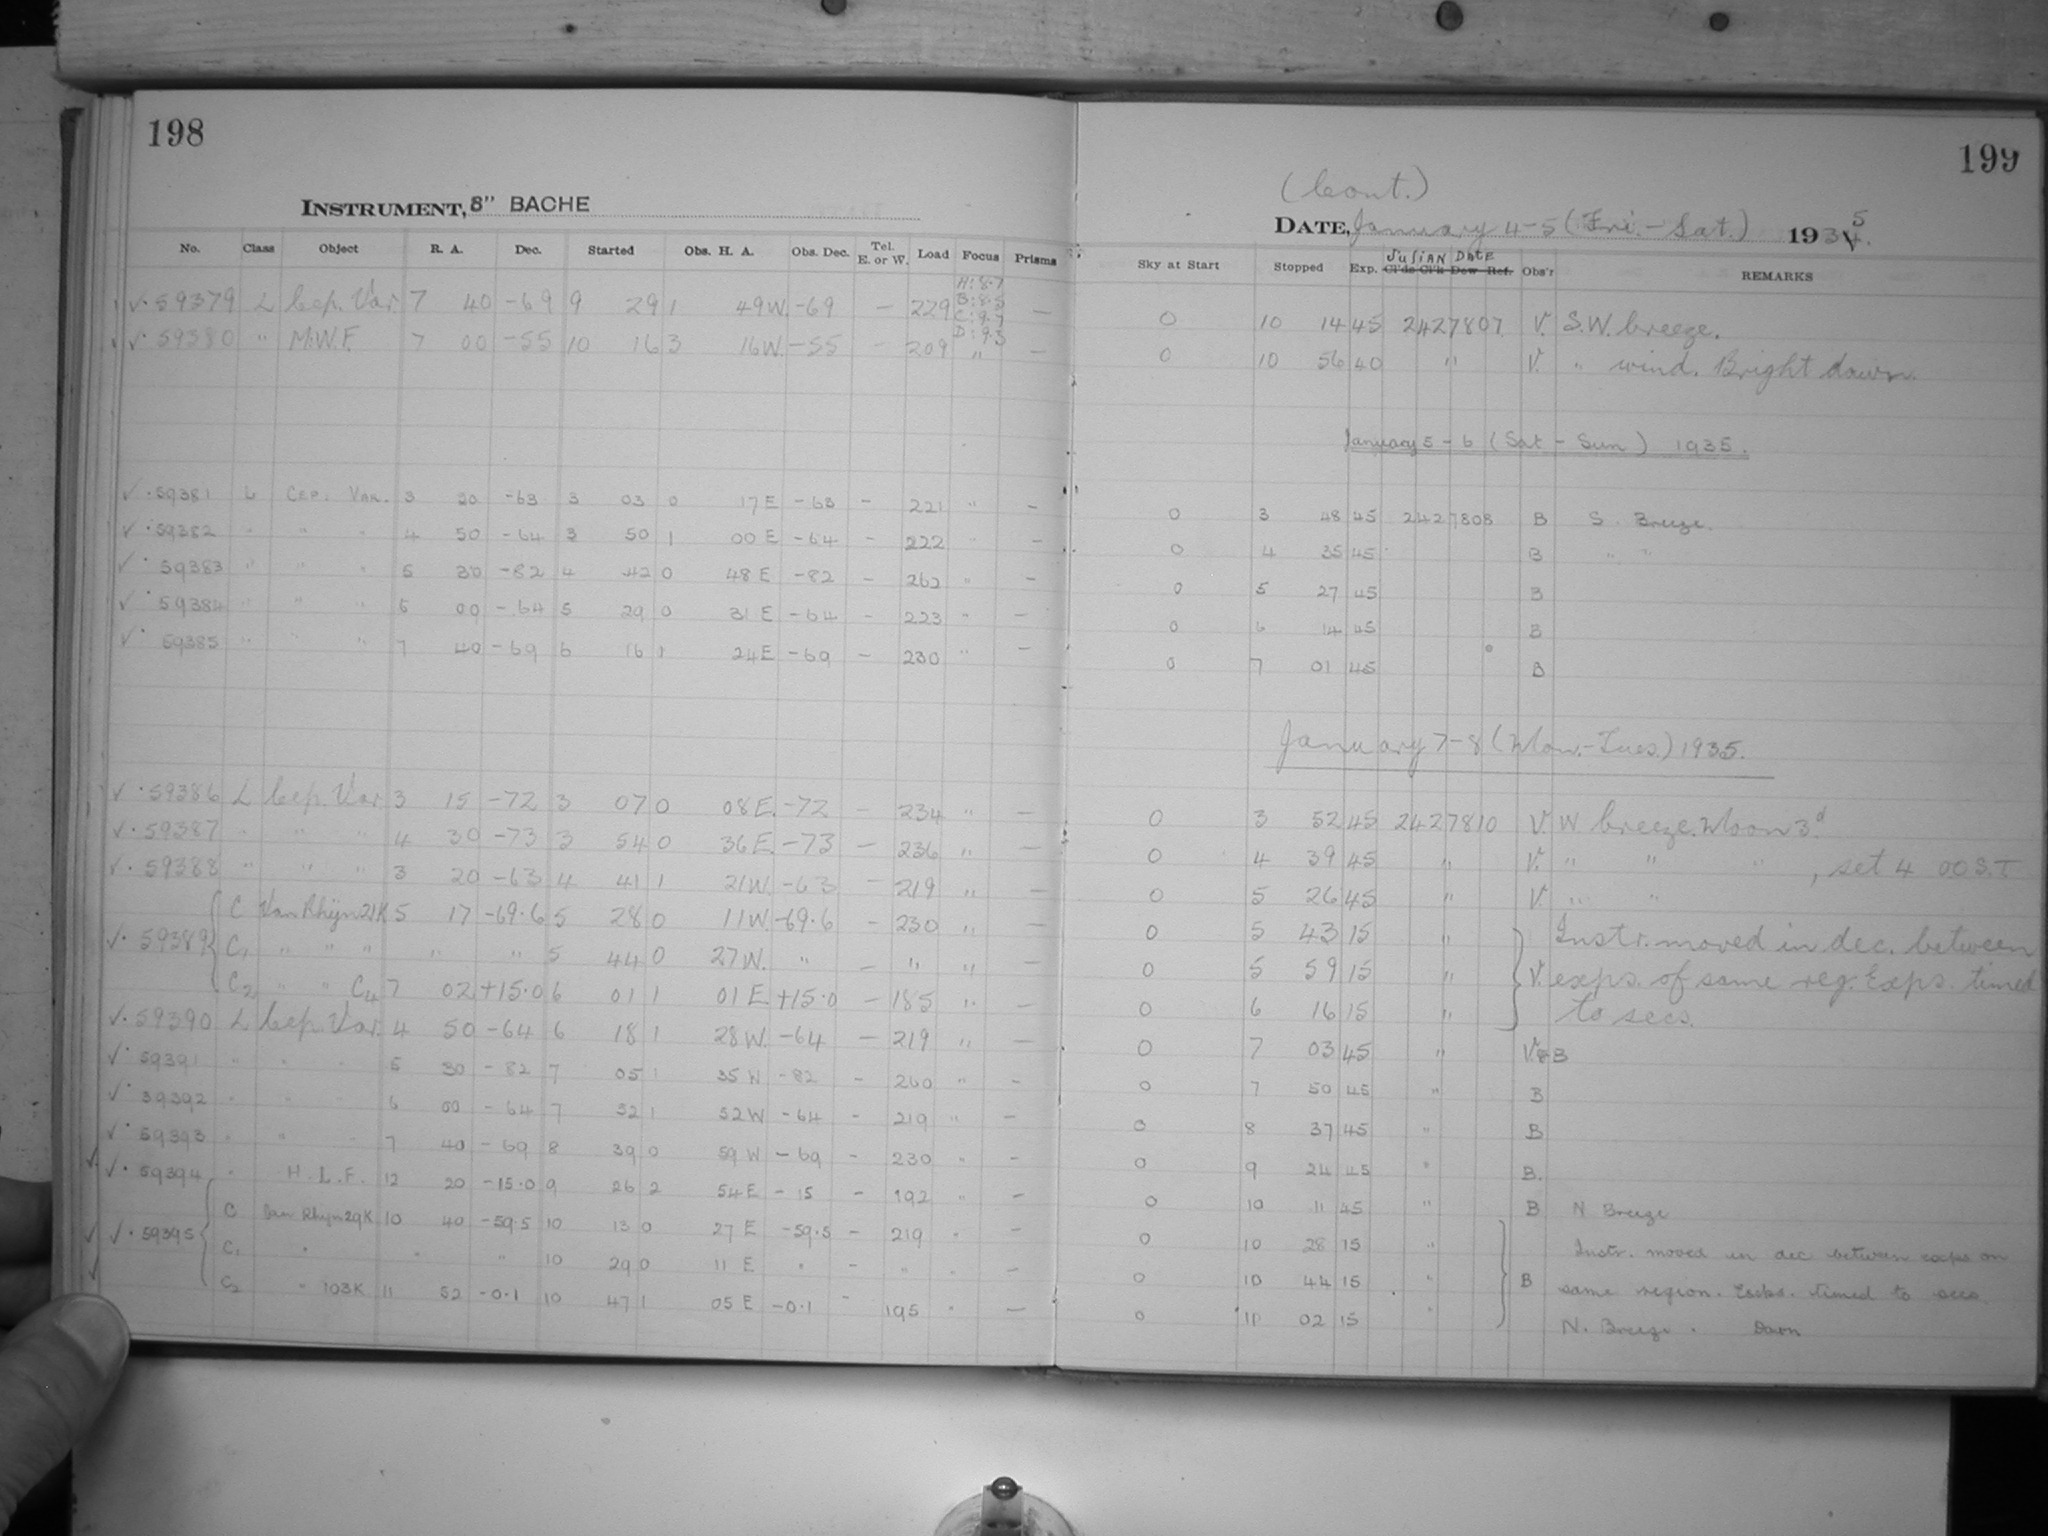 198
INSTRUMENT, 8" BACHE
No. Class Object R. A. Dec. Started Obs. H. A. Obs. Dec. Tel. E. or W. Load Focus Prisms
✓·59379 L Cep. Var. 7 40 -69 9 29 1 49W. -69 — 229 A: 8.7 B: 8.5 C: 9.7 D: 9.3 —
✓ 59380 " M.W.F. 7 00 -55 10 16 3 16W. -55 — 209 " —
✓·59381 L CEP. VAR. 3 20 -63 3 03 0 17 E -63 - 221 " -
✓·59382 " " " 4 50 -64 3 50 1 00 E -64 - 222 " -
✓·59383 " " " 5 30 -82 4 42 0 48 E -82 - 262 " -
✓·59384 " " " 6 00 -64 5 29 0 31 E -64 - 223 " -
✓·59385 " " " 7 40 -69 6 16 1 24 E -69 - 230 " -
✓·59386 L Cep. Var. 3 15 -72 3 07 0 08 E. -72 — 234 " —
✓·59387 " " " 4 30 -73 3 54 0 36 E. -73 — 236 " —
✓·59388 " " " 3 20 -63 4 41 1 21W. -63 — 219 " —
C Van Rhijn 21K 5 17 -69.6 5 28 0 11W. -69.6 — 230 " —
✓·59389 C₁ " " " " " 5 44 0 27W. " — " " —
C₂ " " C4 7 02 +15.0 6 01 1 01 E. +15.0 — 185 " —
✓·59390 L Cep. Var. 4 50 -64 6 18 1 28W. -64 — 219 " —
✓·59391 " " " 5 30 -82 7 05 1 35 W -82 - 260 " -
✓·59392 " " " 6 00 -64 7 52 1 52 W -64 - 219 " -
✓·59393 " " " 7 40 -69 8 39 0 59 W -69 - 230 " -
✓·59394 " H.L.F. 12 20 -15.0 9 26 2 54 E -15 - 192 " -
C Van Rhijn 29K 10 40 -59.5 10 13 0 27 E -59.5 - 219 " -
✓·59395 C₁ " " " 10 29 0 11 E " - " " -
C₂ " 103K 11 52 -0.1 10 47 1 05 E -0.1 - 195 " —
199
(Cont.)
DATE, January 4-5 (Fri.-Sat.) 1934. 5
Sky at Start Stopped Exp. JULIAN DATE Cl'ds Cl'k Dew Ref. Obs'r REMARKS
0 10 14 45 2427807 V. S.W. breeze.
0 10 56 40 " V. " wind. Bright dawn.
January 5-6 (Sat-Sun) 1935.
0 3 48 45 2427808 B S. Breeze.
0 4 35 45 B " "
0 5 27 45 B
0 6 14 45 B
0 7 01 45 B
January 7-8 (Mon.-Tues.) 1935.
0 3 52 45 2427810 V W breeze. Moon 3d
0 4 39 45 " V. " " " , set 4 00 S.T
0 5 26 45 " V. " "
0 5 43 15 " Instr. moved in dec. between
0 5 59 15 " V. exps. of same reg. Exps. timed
0 6 16 15 " to secs.
0 7 03 45 " V.&B
0 7 50 45 " B
0 8 37 45 " B
0 9 24 45 " B.
0 10 11 45 " B N Breeze
0 10 28 15 " Instr. moved in dec between exps on
0 10 44 15 " B same region. Exps. timed to secs.
0 11 02 15 " N. Breeze. Dawn